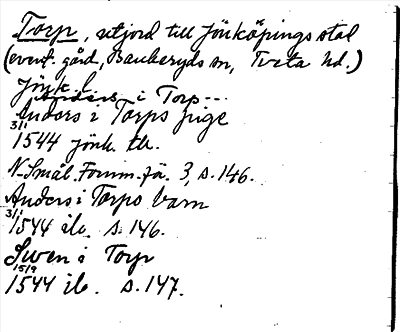 Torp, utjord till Jönköpings stad
(event. gård, Bankeryds sn, Tveta hd.)
Jönk. l.
Anders i Torp---
Anders i Torps pige
3/1
1544 jönk. tb.
N. Smål. Fornm.för. 3, s. 146.
Anders i Torps barn
3/1
1544 ib. s. 146.
Swen i Torp
15/9
1544 ib. s. 147.